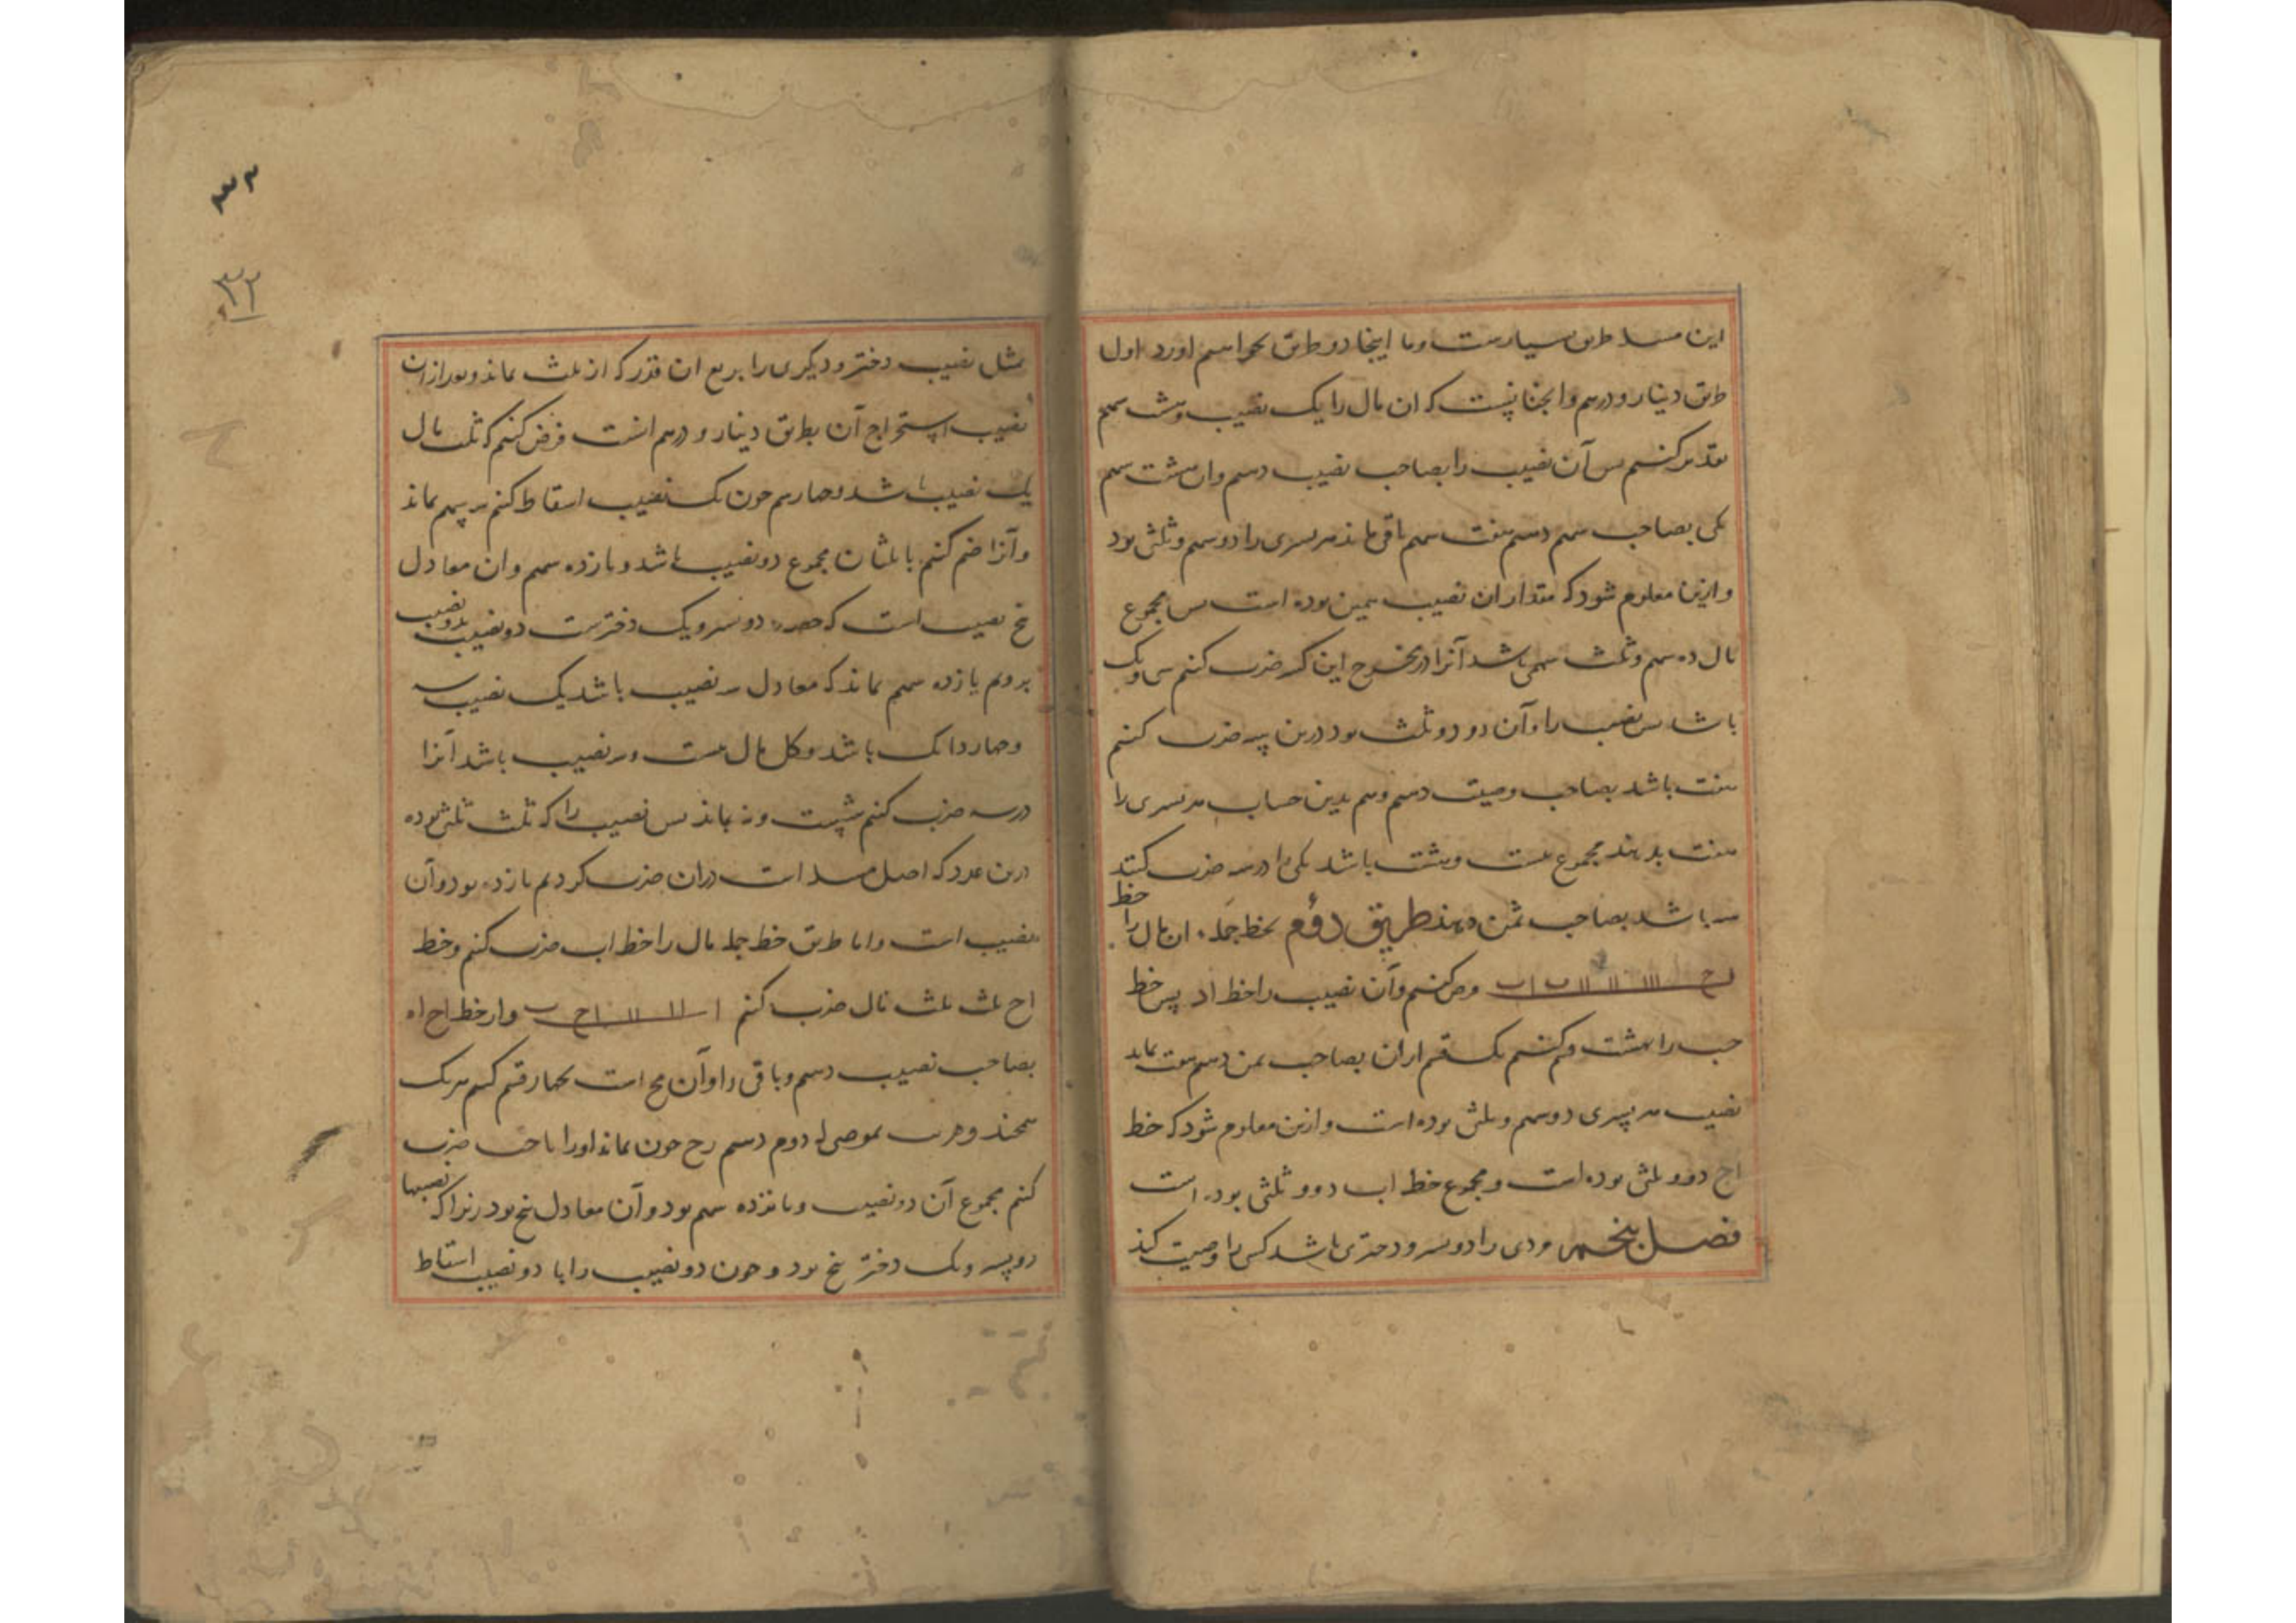 این مسئله طریق بسیارست و ما اینجا دو طریق بخواهیم آورد اول
طریق دینار و درهم و آنچنانست که ان مال را یک نصیب و هشت سهم
تقدیر کنیم پس آن نصیب را بصاحب نصیب دهیم و ان هشت سهم
یکی بصاحب سهم دهیم هفت سهم باقی ماند هر پسری را دو سهم و ثلثی بود
و ازین معلوم شود که مقدار ان نصیب همین بوده است پس مجموع
مال ده سهم و ثلث سهمی باشد آنرا در مخرج این کسر ضرب کنم سی و یک
باشد پس نصیب را و آن دو و ثلث بود درین سه ضرب کنیم
هفت باشد بصاحب وصیت دهیم و هم بدین حساب هر پسری را
هفت بدهند مجموع بیست و هشت باشد یکی را در سه ضرب کنند
سه باشد بصاحب ثمن دهند طریق دوم بخط جمله ان مال را خط
ا ب فرض کنیم و آن نصیب را خط اد پس خط
حب را بهشت قسم کنیم یک قسم ازان بصاحب ثمن دهیم هفت بماند
نصیب هر پسری دو سهم و ثلثی بوده است و ازین معلوم شود که خط
اج دو و ثلثی بوده است و مجموع خط اب ده و ثلثی بوده است
فصل پنجم مردی را دو پسر و دختری باشد کسی را وصیت کند
بمثل نصیب دختر و دیگری را بربع ان قدر که از ثلث بماند بعد از ان
نصیب استخراج آن بطریق دینار و درهم انست فرض کنیم که ثلث مال
یک نصیب باشد و چهار سهم چون یک نصیب اسقاط کنم سه سهم بماند
و آنرا ضم کنم با ثلثان مجموع دو نصیب باشد و یازده سهم و ان معادل
پنج نصیب است که حصه دو پسر و یک دخترست دو نصیب بدو نصیب
برود یازده سهم بماند که معادل سه نصیب باشد یک نصیب سه
و چهار دانک باشد و کل مال بیست و سه نصیب باشد آنرا
در سه ضرب کنم شصت و نه بماند پس نصیب را که ثلث ثلثی بوده
درین عدد که اصل مسئله است دران ضرب کردیم یازده بود و آن
نصیب است و اما طریق خط جمله مال را خط اب ضرب کنم و خط
اح ثلث ثلث مال ضرب کنم ا ح ب و از خط اح اه
بصاحب نصیب دهیم و باقی را و آن هح است بچهار قسم کنیم هر یک
بموصی له دوم دهیم رح چون بماند اورا با حب ضرب
کنم مجموع آن دو نصیب و یازده سهم بود و آن معادل پنج بود زیرا که نصیبها
دو پسر و یک دختر پنج بود و چون دو نصیب را با دو نصیب اسقاط